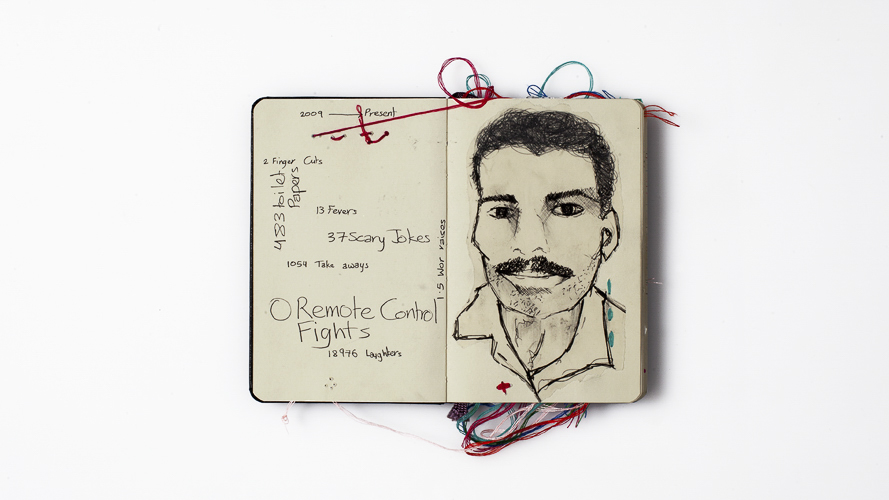 2009 — Present
2 Finger Cuts
483 toilet
Papers
13 Fevers
37 Scary Jokes
1054 Take aways
1.5 Wor raices
0 Remote Control
Fights
18976 Laughters